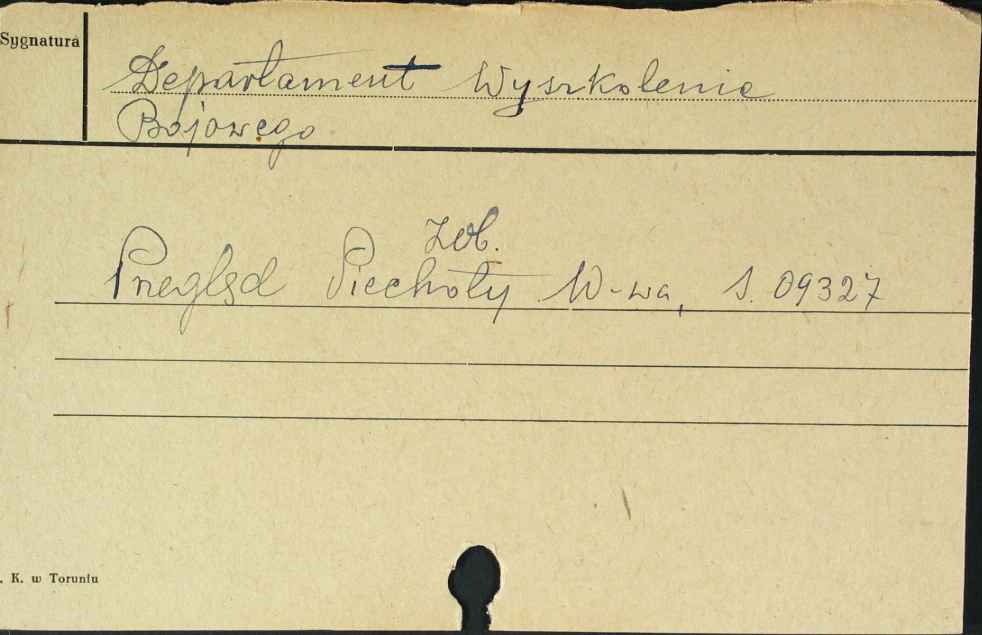 Sygnatura
Departament Wyszkolenia
Bojowego
zob.
Przegląd Piechoty W-wa, S. 09327
. K. w Toruniu